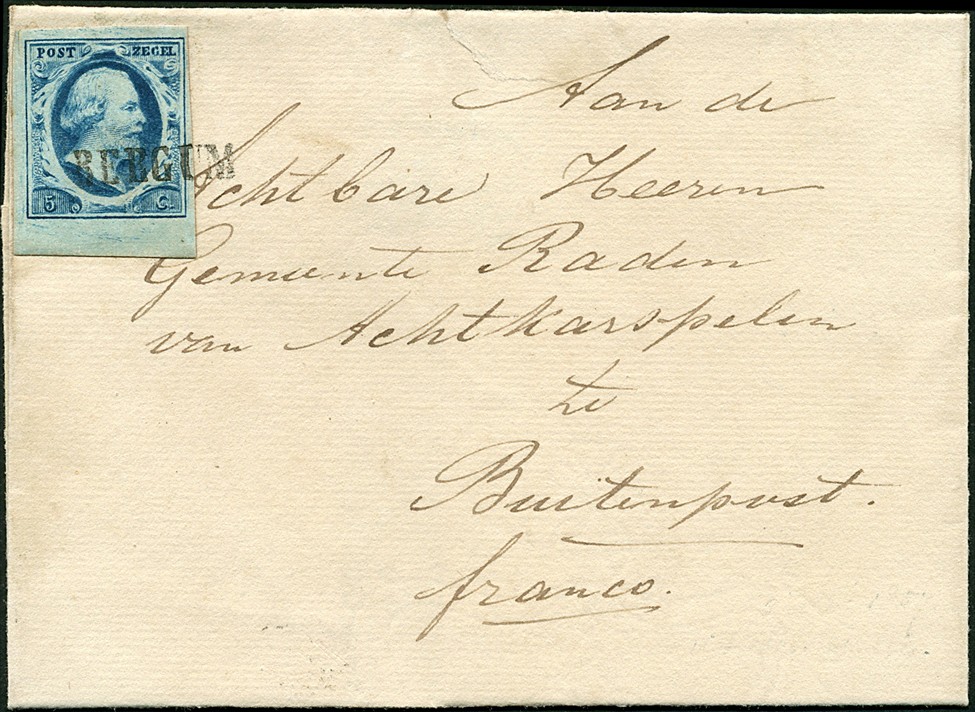 POST ZEGEL
BERGUM
5 C.
Aan de
Achtbare Heeren
Gemeente Raden
van Achtkarspelen
te
Buitenpost.
franco.